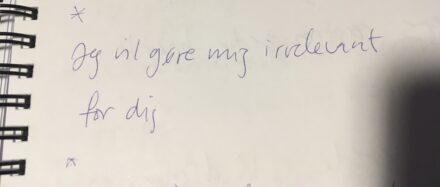 *
Jeg vil gøre mig irrelevant
for dig
*